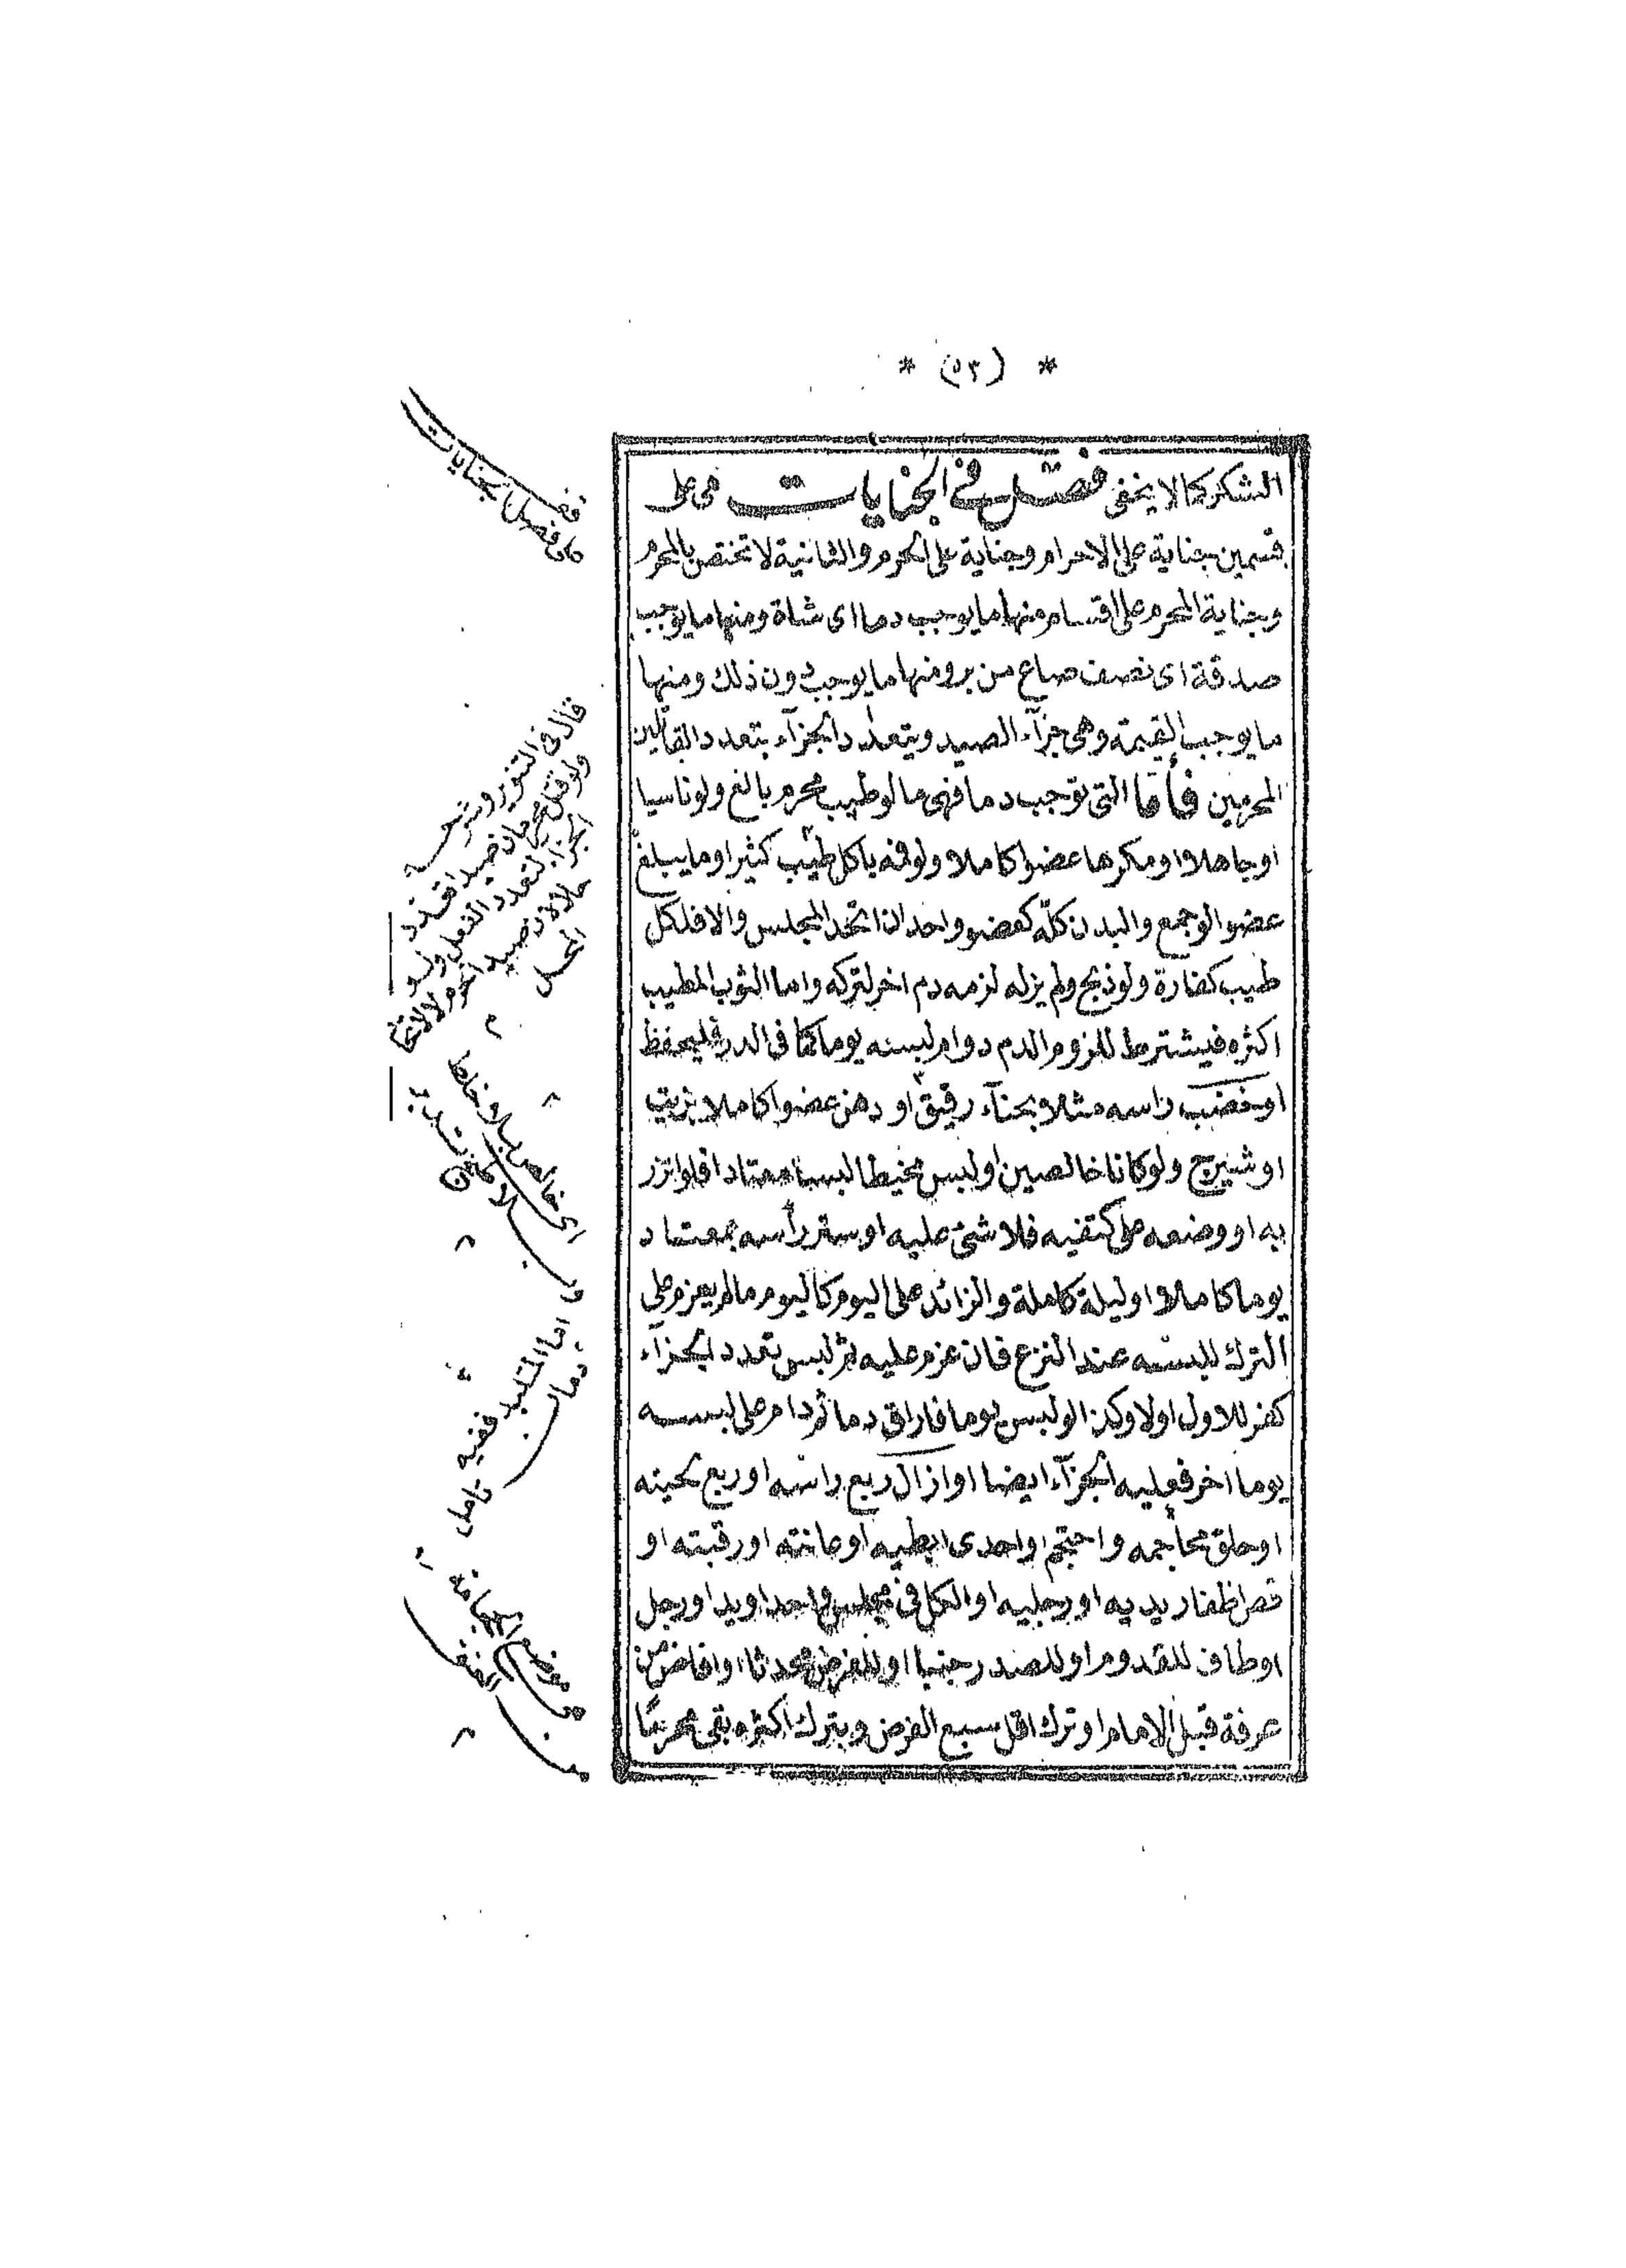 * (٥٣) *
الشكر كما لا يخفى فصل في الجنايات هي على
قسمين جناية على الاحرام وجناية على الحرم والثانية لا تختص بالمحرم
وجناية المحرم على اقسام منها ما يوجب دما اى شاة ومنها ما يوجب
صدقة اى نصف صاع من بر ومنها ما يوجب دون ذلك ومنها
ما يوجب القيمة وهى جزآء الصيد ويتعدد الجزآء بتعدد القاتلين
المحرمين فأما التى توجب دما فهى ما لو طيب محرم بالغ ولو ناسيا
او جاهلا او مكرها عضوا كاملا ولو فمه باكل طيب كثير او ما يبلغ
عضوا لو جمع والبدن كله كعضو واحد ان اتحد المجلس والا فلكل
طيب كفارة ولو ذبح ولم يزله لزمه دم اخر لتركه واما الثوب المطيب
اكثره فيشترط للزوم الدم دوام لبسه يوما كما فى الدر فليحفظ
او خضب راسه مثلا بحنآء رقيق او دهن عضوا كاملا بزيت
او شيرج ولو كانا خالصين او لبس مخيطا لبسا معتادا فلو اتزر
به او وضعه على كتفيه فلا شئ عليه او ستر رأسه بمعتاد
يوما كاملا او ليلة كاملة والزائد على اليوم كاليوم ما لم يعزم على
الترك للبسه عند النزع فان عزم عليه ثم لبس تعدد الجزآء
كفر للاول او لا وكذا لو لبس يوما فاراق دما ثم دام على لبسه
يوما اخر فعليه الجزآء ايضا او ازال ربع راسه او ربع لحيته
او حلق محاجمه واحتجم او احدى ابطيه او عانته او رقبته او
قص اظفار يديه او رجليه او الكل فى مجلس واحد او يد او رجل
او طاف للقدوم او للصدر جنبا او للفرض محدثا او افاض من
عرفة قبل الامام او ترك اقل سبع الفرض وبترك اكثره بقى محرما
فصل الجنايات
قال فى التنوير وشرحه
ولو قتل محرمان صيدا تعدد
الجزا لتعدد الفعل ولو
حلالان صيد الحرم لا لاتحاد
المحل
اى خالصا
اما المتلبد ففيه
دمان
تامل
موضع الحجامة
من العنق